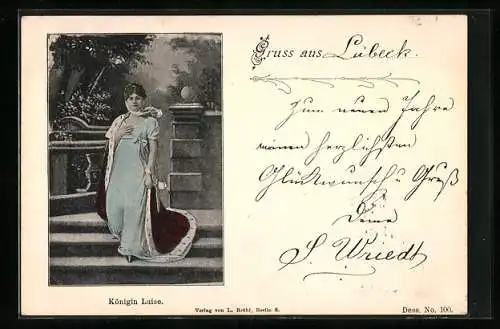 Gruss aus Lübeck.
Zum neuen Jahre
meinen herzlichsten
Glückwunsch u Gruß
Deine
S. Wriedt
Königin Luise.
Verlag von L. Brühl, Berlin S.
Dess. No. 100.